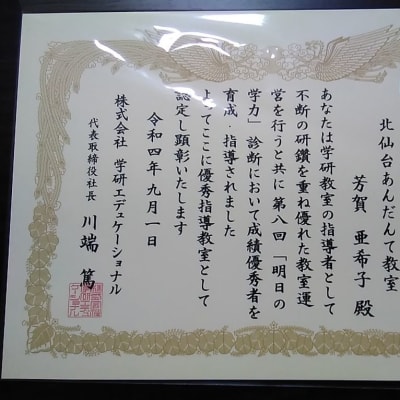 北仙台あんだんて教室
芳賀 亜希子 殿
あなたは学研教室の指導者として
不断の研鑽を重ね優れた教室運
営を行うと共に第八回「明日の
学力」診断において成績優秀者を
育成・指導されました
よってここに優秀指導教室として
認定し顕彰いたします
令和四年九月一日
株式会社 学研エデュケーショナル
代表取締役社長 川端 篤